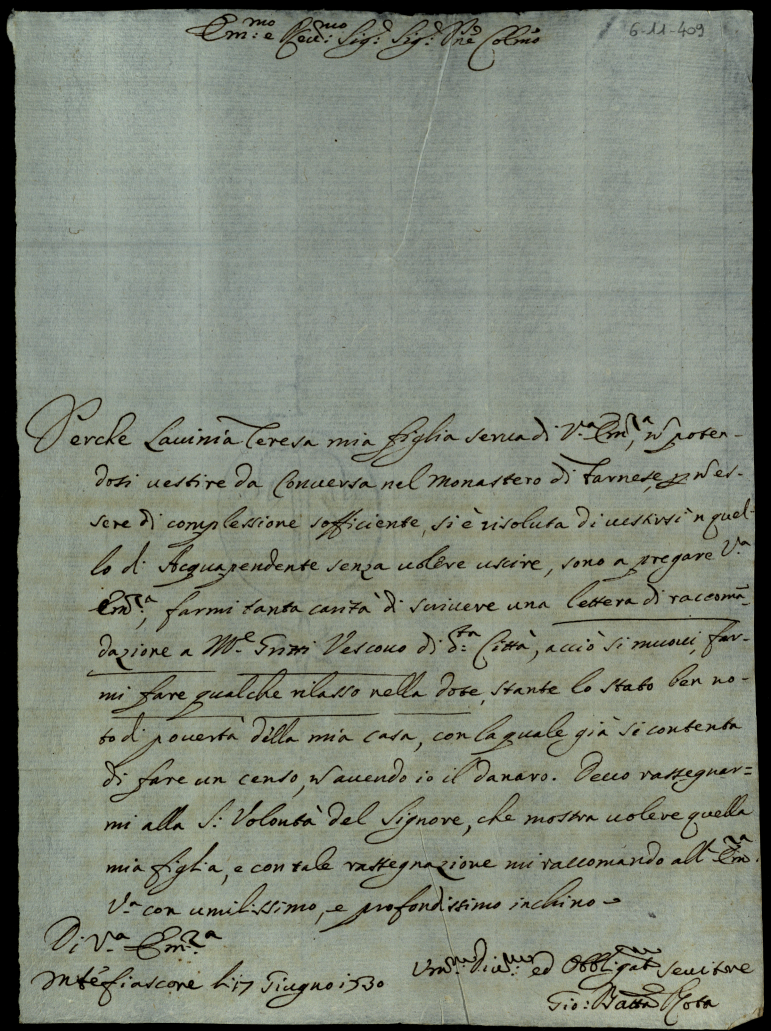 Em:mo e Reu:mo Sig:r Sig:r Pñe Colmo
6-11-409
Perche Lauinia Teresa mia figlia serua di V:a Em:za, ñ poten-
dosi uestire da Conuersa nel Monastero di Farnese, p ñ es-
sere di complessione sofficiente, si è risoluta di uestirsi ñ quel-
lo di Acquapendente senza uolere uscire, sono a pregare V:a
Em:za, farmi tanta carità di scriuere una lettera di raccomã-
dazione a M:re Gritti Vescouo di d:ta Città, acciò si muoui, far-
mi fare qualche rilasso nella dote, stante lo stato ben no-
to di pouertà della mia casa, con la quale già si contenta
di fare un censo, ñ auendo io il danaro. Deuo rassegnar=
mi alla S: Volontà del Signore, che mostra uolere quella
mia figlia, e con tale rassegnazione mi raccomando all' Em:za
V:a con umilissimo, e profondissimo inchino
Di V:a Em:za
Mñtefiascone li 17 Giugno 1730
Vm:mo Diu:mo ed Obbligat:mo Seruitore
Gio: Batta Rota